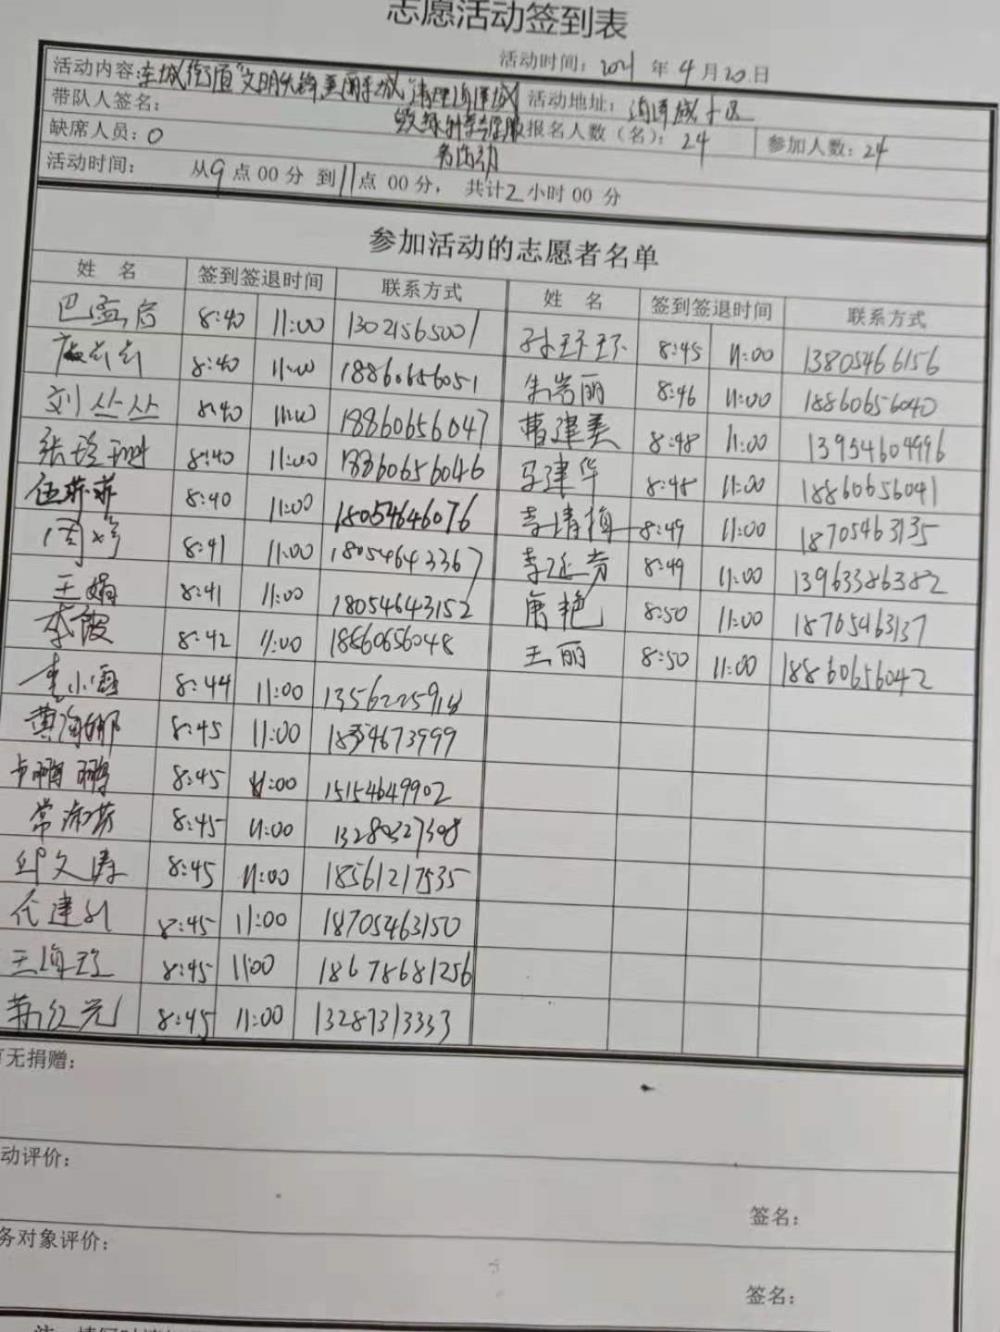 志愿活动签到表
活动时间：2021 年 4 月 20 日
活动内容：东城街道"文明先锋美丽东城"清理海通城
毁绿种菜志愿服
务活动
活动地址：海通城小区
带队人签名：
报名人数（名）：24
参加人数：24
缺席人员：0
活动时间： 从 9 点 00 分 到 11 点 00 分， 共计 2 小时 00 分
参加活动的志愿者名单
姓 名 签到签退时间 联系方式 姓 名 签到签退时间 联系方式
巴孟启 8:40 11:00 13021565001 孙珍珍 8:45 11:00 13805466156
8:40 11:00 18860656051 朱岩丽 8:46 11:00 18860656040
刘丛丛 8:40 11:00 18860656047 曹建美 8:48 11:00 13954604996
张珍珊 8:40 11:00 18860656046 马建华 8:48 11:00 18860656041
伍菲菲 8:40 11:00 18054646076 李清梅 8:49 11:00 18705463135
周婷 8:41 11:00 18054643367 李延芳 8:49 11:00 13963386382
王娟 8:41 11:00 18054643152 唐艳 8:50 11:00 18705463137
李霞 8:42 11:00 18860656048 王丽 8:50 11:00 18860656042
李小海 8:44 11:00
黄海娜 8:45 11:00
卡鹏鹏 8:45 11:00 15154649902
常沛芬 8:45 11:00
邱文涛 8:45 11:00 18561217535
任建 8:45 11:00 18705463150
王海珍 8:45 11:00 18678681256
8:45 11:00 13287313333
有无捐赠：
动评价：
签名：
务对象评价：
签名：